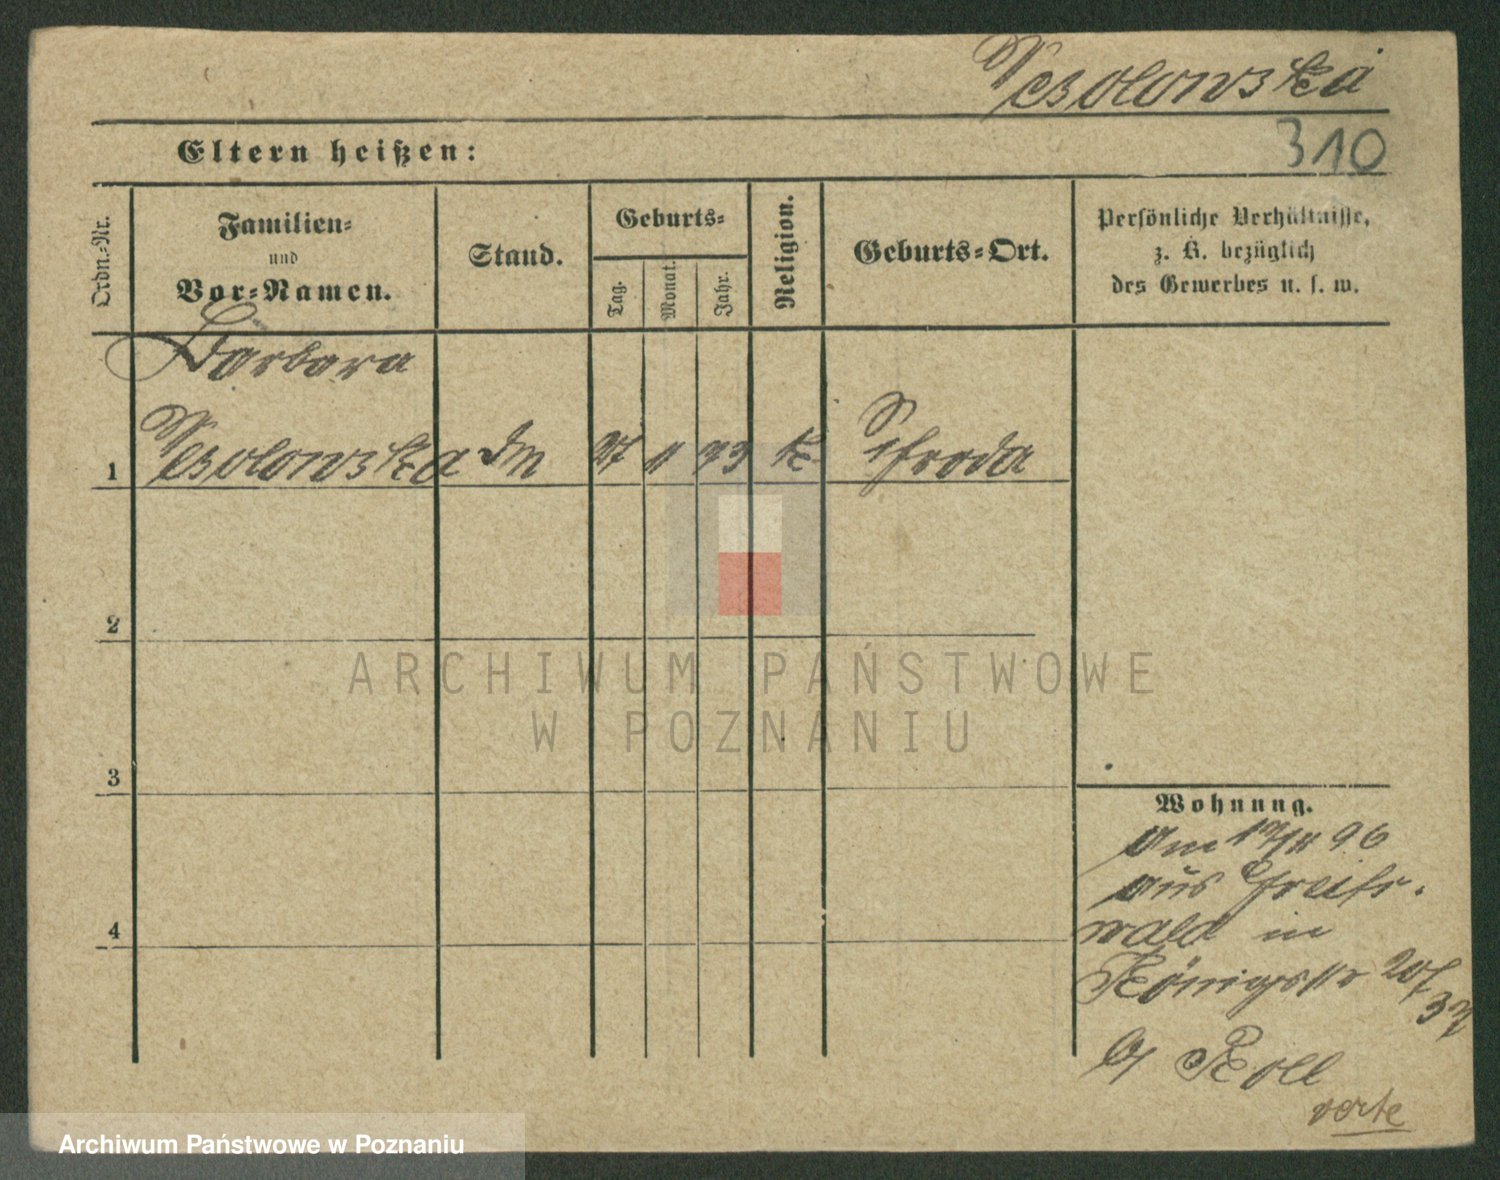 Wesolowska
310
Eltern heißen:
Ordn.-Nr.
Familien-
und
Vor-Namen.
Stand.
Geburts-
Tag.
Monat.
Jahr.
Religion.
Geburts-Ort.
Persönliche Verhältnisse,
z. B. bezüglich
des Gewerbes u. s. w.
Barbara
1 Wesolowska 27 11 73 k Schroda
2
ARCHIWUM PAŃSTWOWE
W POZNANIU
3
Wohnung.
am 17/11 96
aus Greifs-
4
wald in
Königsstr 20/
37
b/ Roll
verte
Archiwum Państwowe w Poznaniu